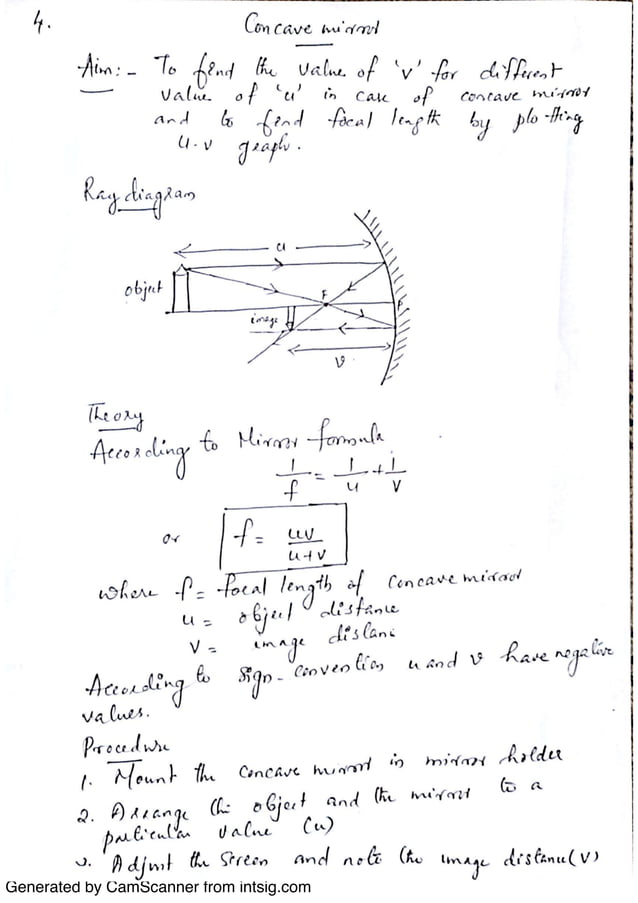 4.
Concave mirror
Aim:- To find the value of 'v' for different
value of 'u' in case of concave mirror
and to find focal length by plo-tting
u-v graph.
Ray diagram
u
object
F
P
image
v
Theory
According to Mirror formula
1/f = 1/u + 1/v
or f = uv/u+v
where f = focal length of concave mirror
u = object distance
v = image distanc
According to sign-convention u and v have negative
values.
Procedure
1. Mount the concave mirror in mirror holder
2. Arrange the object and the mirror to a
particular value (u)
3. Adjust the screen and note the image distance (v)
Generated by CamScanner from intsig.com